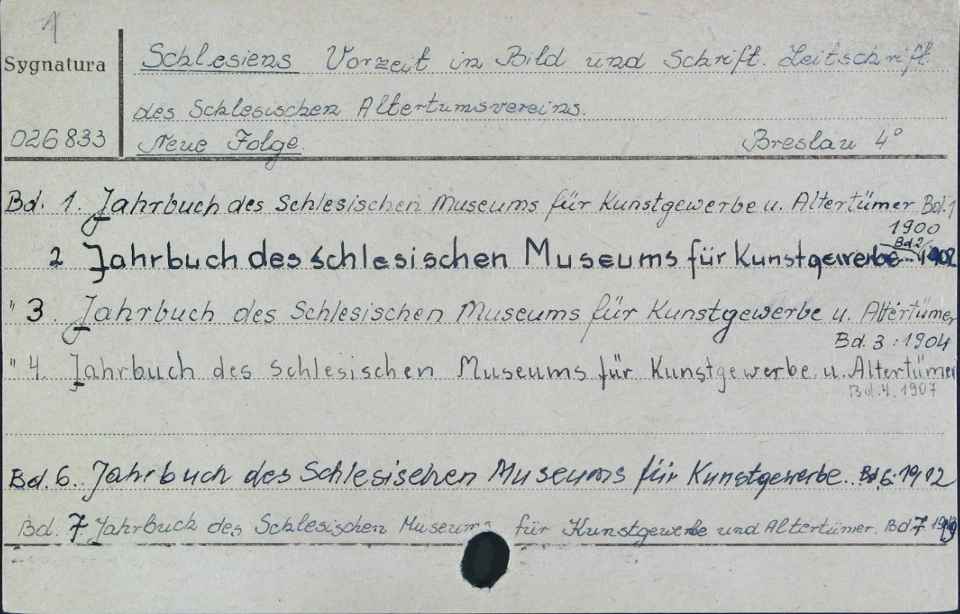 1
Sygnatura
Schlesiens Vorzeit in Bild und Schrift. Zeitschrift
des Schlesischen Altertumsvereins.
026833 Neue Folge. Breslau 4°
Bd. 1. Jahrbuch des Schlesischen Museums für Kunstgewerbe u. Altertümer Bd. 1
1900
2 Jahrbuch des schlesischen Museums für Kunstgewerbe Bd 2 1902
" 3. Jahrbuch des Schlesischen Museums für Kunstgewerbe u. Altertümer
Bd. 3: 1904
" 4. Jahrbuch des Schlesischen Museums für Kunstgewerbe u. Altertümer
Bd. 4. 1907
Bd. 6. Jahrbuch des Schlesischen Museums für Kunstgewerbe. Bd. 6. 1912
Bd. 7 Jahrbuch des Schlesischen Museums für Kunstgewerbe und Altertümer. Bd 7 1919